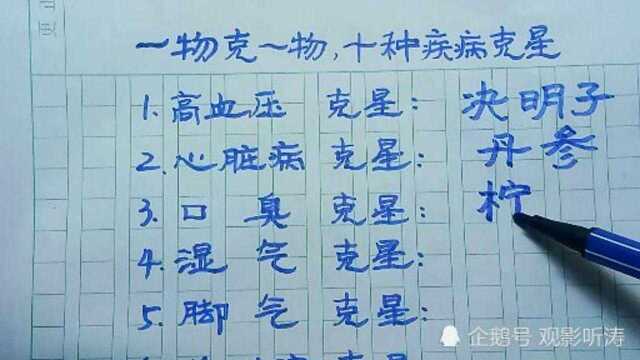 一物克一物,十种疾病克星
1.高血压 克星: 决明子
2.心脏病 克星: 丹参
3.口臭 克星: 柠
4.湿气 克星:
5.脚气 克星:
企鹅号 观影听涛